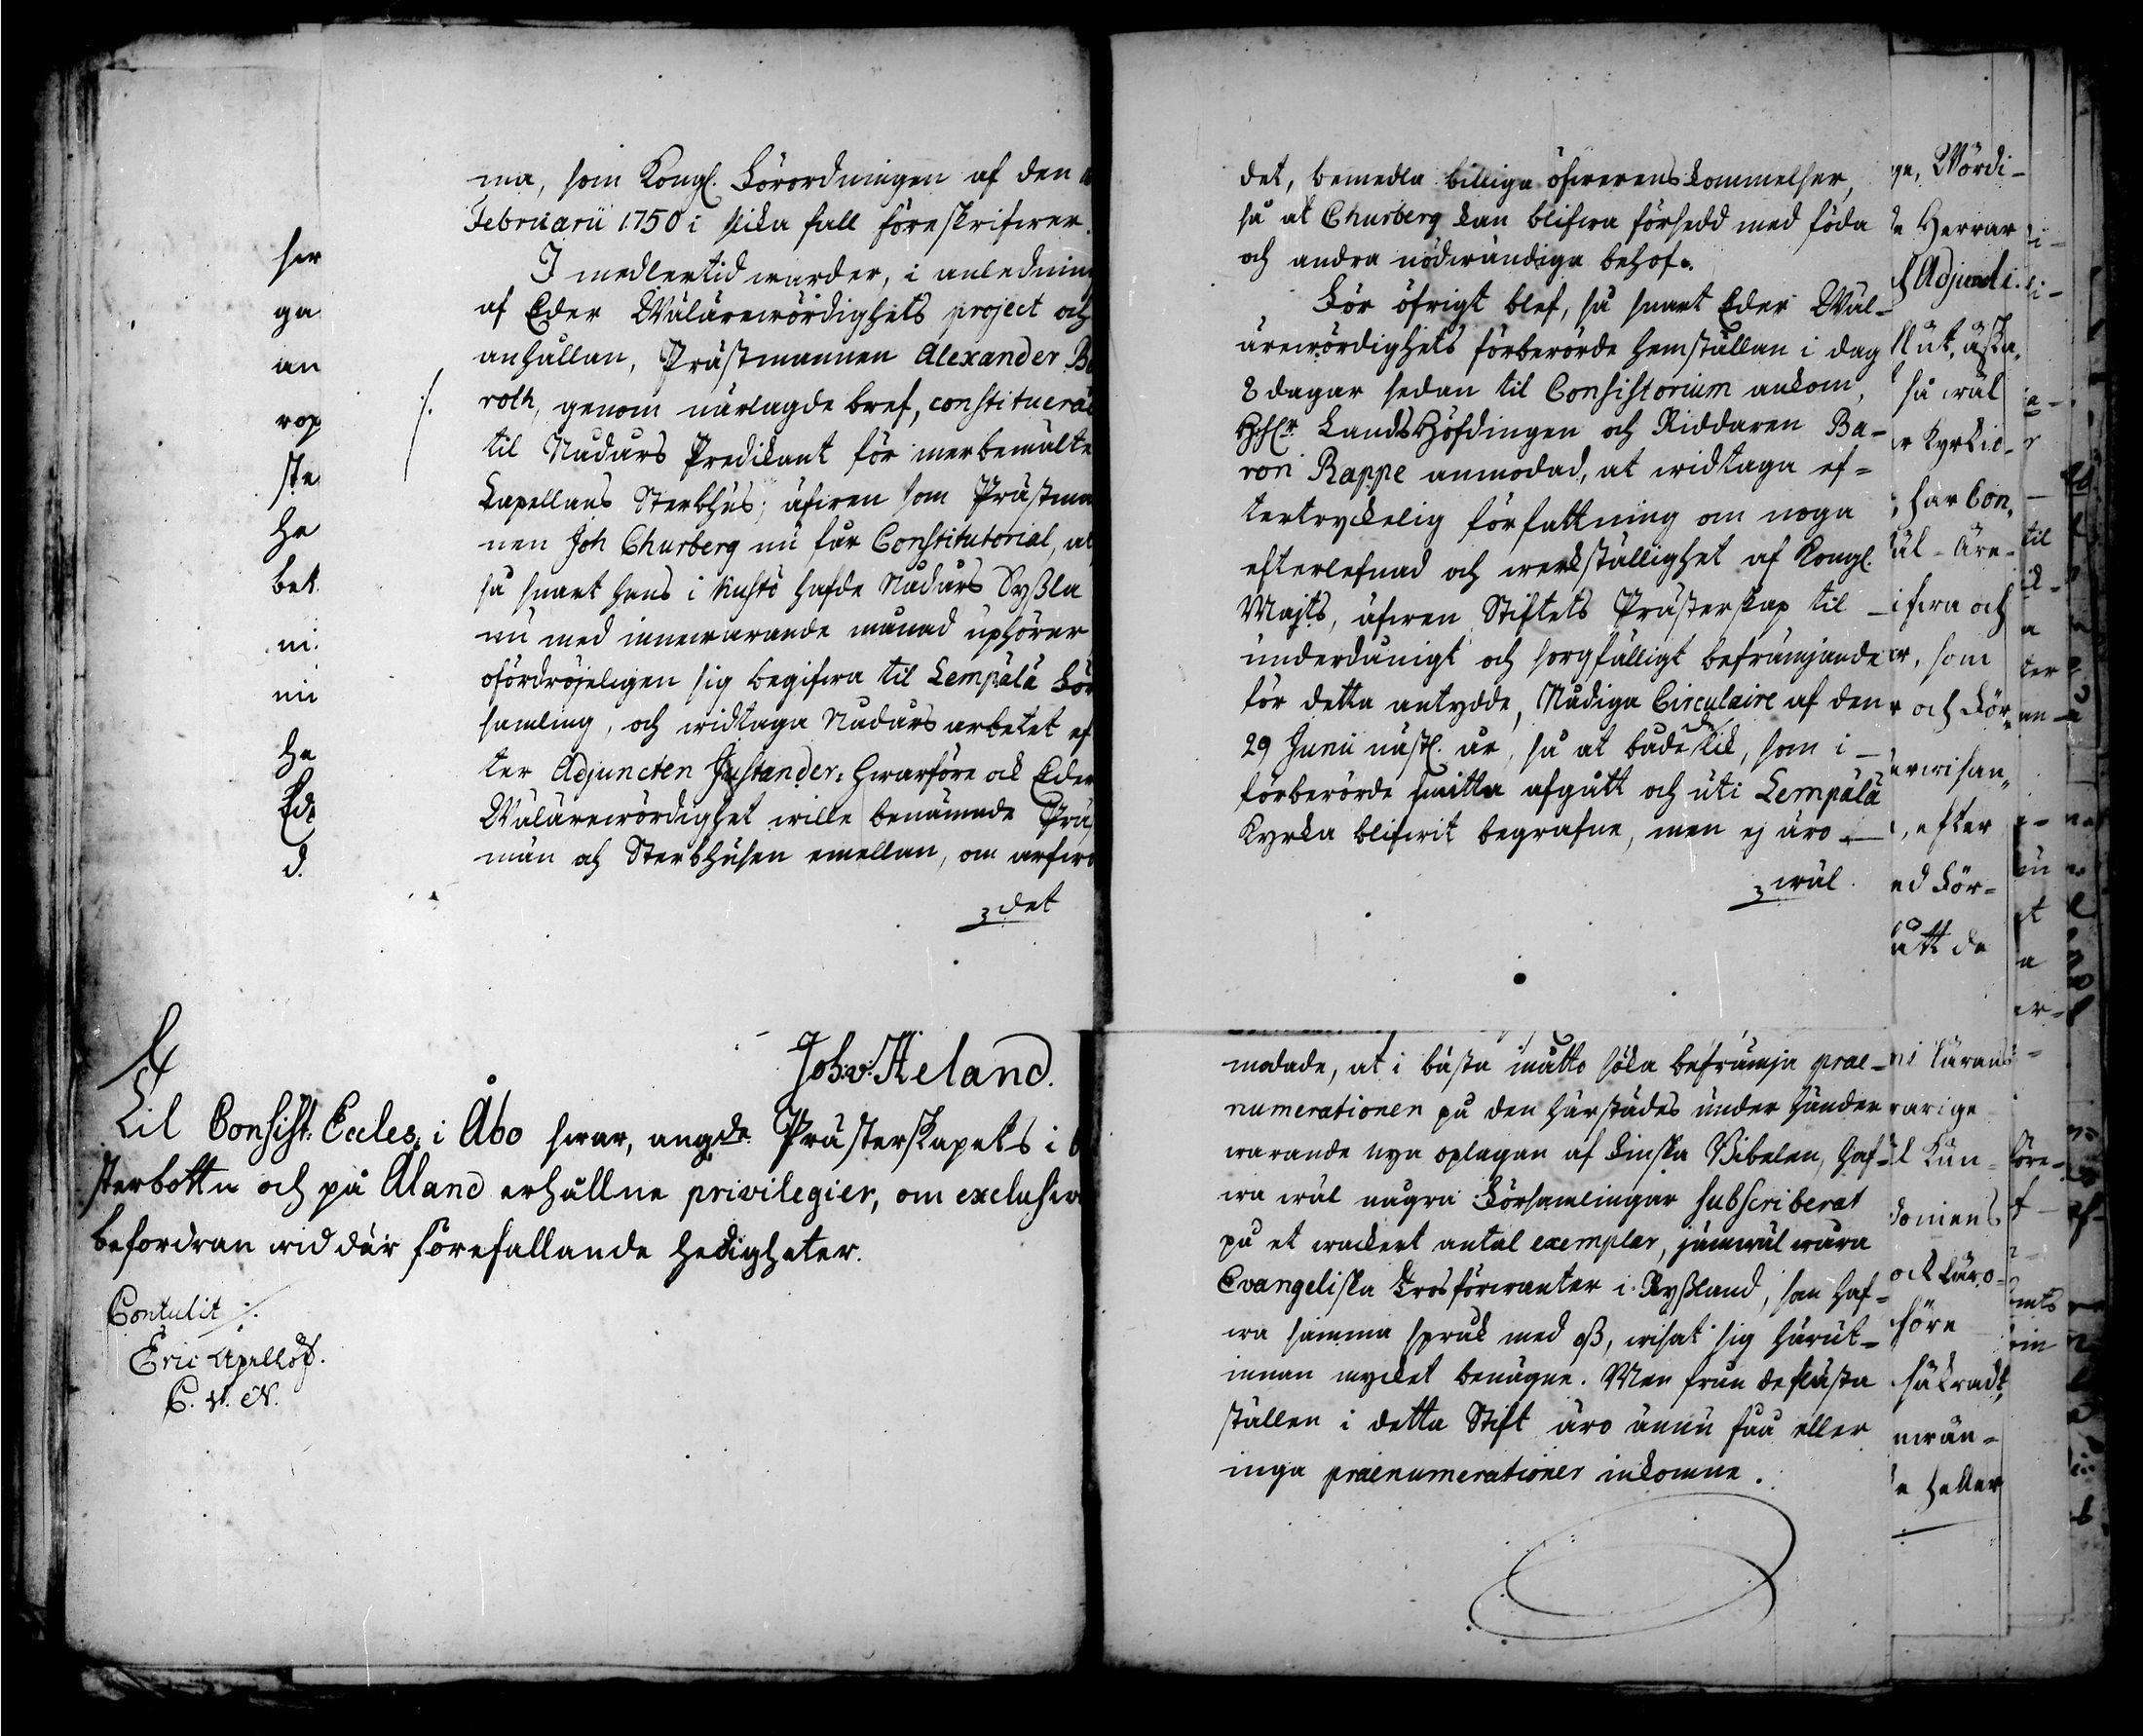 ma, som Kongl. Förordningen af den
Februarii 1750 i slika fall föreskrifwer.
I medlertid warder, i anledning
af Eder Wälärewördighets project och
anhållan, Prästmannen Alexander
roth, genom närlagde bref, constituerad
til Nådårs Predikant för merbemälte
Capellans Sterbhus; äfwen som Prästman
nen Joh Churberg nu får Constitutorial, at
så snart hans i hafde Nådårs Syszla
nu med innewarande månad uphörer
ofördröjeligen sig begifwa til Lempälä För
samling, och widtaga Nådårs arbetet ef
ter Adjuncten Justander. Hwarföre ock Eder
Wälärewördighet wille benämnde Prä
män och Sterbhusen emellan, om arfwo
det
swar
ga
an
rop
ste
ha
bet
ni
mi
ha
Ed
d.
Joh: v: Heland.
Til Consist: Eccles: i Åbo swar, angde Prästerskapets i
sterbottn och på Aland erhållne privilegier, om exclusive
befordran wid där förefallande ledigheter.
Contulit
Eric Apellöf.
C. V. N.
det, bemedla billiga öfwerenskommelser,
så at Churberg kan blifwa försedd med föda
och andra nödwändiga behof.
För öfrigt blef, så snart Eder Wäl-
ärewördighets förberörde hemställan i dag
8 dagar sedan til Consistorium ankom,
LandsHöfdingen och Riddaren Ba-
ron Rappe anmodad, at widtaga ef-
tertryckelig författning om noga
efterlefnad och werkställighet af Kongl.
Majts, äfwen Stiftets Prästerskap til
underdånigt och sorgfälligt befrämjande
för detta antydde, Nådiga Circulaire af den
29 Junii nästl. år, så at både lik, som i
förberörde smitta afgått och uti Lempälä
Kyrka blifwit begrafne, men ej äro
wäl
modade, at i bästa måtto söka befrämja prae-
numerationen på den härstädes under händer
warande nya oplagan af Finska Bibelen, haf-
wa wäl några Församlingar subscriberat
på et wackert antal exemplar, jämwäl wåra
Evangeliska trosförwanter i Ryszland, som haf-
wa samma språk med osz, wisat sig härut-
innan mycket benägne. Men från de flästa
ställen i detta Stift äro ännu fåa eller
inga praenumerationer inkomne.
ge, Wördi-
Herrar
Adjuncti.
slut, äska,
så wäl
Kyrkie-
har Con,
äl-Äre-
ifwa och
er, som
och För-
erwisan
, efter
ed För-
ått de
ni läran
rarige
Kun-
domens
ock läro-
före
säkradt,
nwän-
heller
til
a
ter
an
et
a
er-
före-